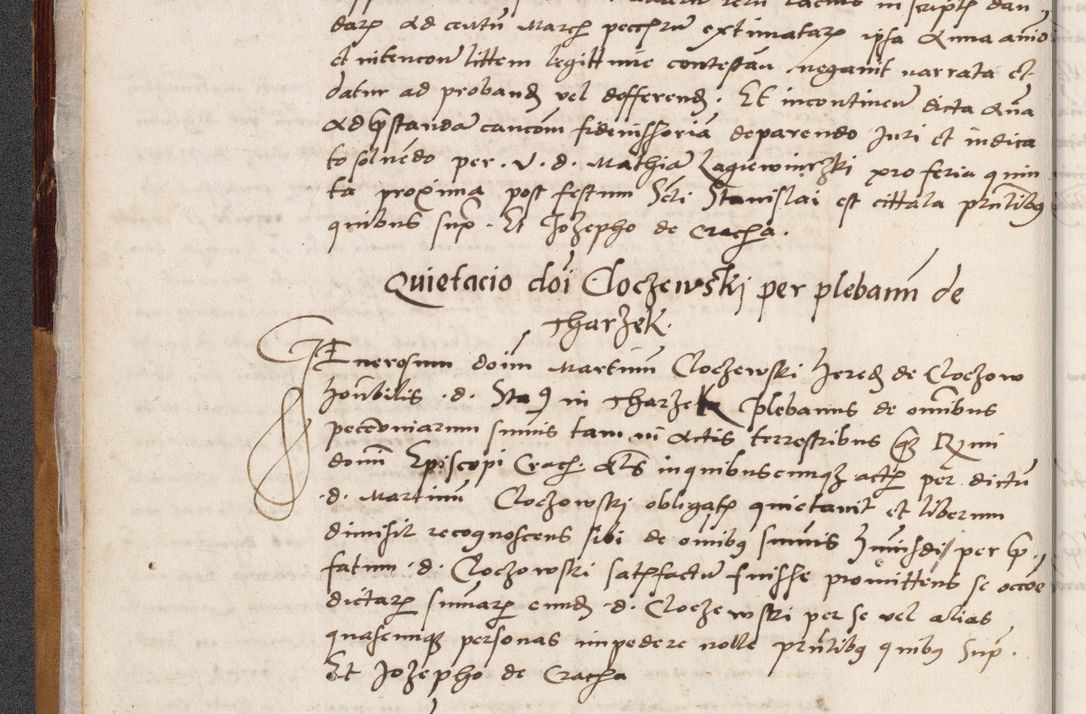 darum ad centum March peccru extimatarum ipsa Anna animo
et intencione littem legittime contestan negavit narrata et
datur ad proband vel defferend. Et incontinen dicta Anna
Ad prestanda caucom fideiussoria deparendo Juri et indica
to soluedo per V. d. Mathia Lagiewniczki pro feria quin
ta proxima post festum Scti Stanislai est cittata prntibus
quibus supra. Et Jozepho de Cracha.
Quietacio doi Cloczewskj per plebanum de
Tharzek.
Generosum doim Martinum Cloczewski hered de Cloczow
honbilis d. Stas in Tharzek plebanus de omnibus
peccuniarum sumis tam in Actis terrestribus R mi
domi Episcopi Crach. Als in quibuscunqz act per dictu
d. Martinum Cloczowski obligat quietavit et liberum
dimisit recognoscens sibi de omibus sumis per pre
fatum d. Cloczowski satisfactum fuisse promittens se occoe
dictarum sumarum eund d. Cloczewski per se vel alias
quascunque personas impedere nolle prntibus quibus supra.
Et Jozepho de Cracha